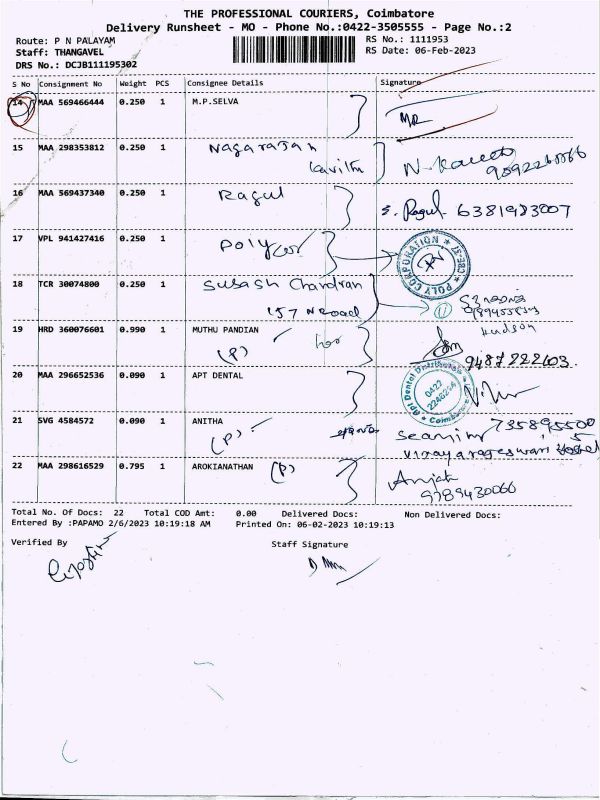 THE PROFESSIONAL COURIERS, Coimbatore
Delivery Runsheet - MO - Phone No.:0422-3505555 - Page No.:2
Route: P N PALAYAM RS No.: 1111953
Staff: THANGAVEL RS Date: 06-Feb-2023
DRS No.: DCJB111195302
S No Consignment No Weight PCS Consignee Details Signature
14 MAA 569466444 0.250 1 M.P.SELVA
15 MAA 298353812 0.250 1 Nagarajan
Kavitha
16 MAA 569437340 0.250 1 Ragul S. Ragul 6381983007
17 VPL 941427416 0.250 1 Poly cor POLY CORPORATION
18 TCR 30074800 0.250 1 Subash Chandran
157 N Road
19 HRD 360076601 0.990 1 MUTHU PANDIAN Hudson
(P) 9487222103
20 MAA 296652536 0.090 1 APT DENTAL Apt Dental Distributors 0422 Coimbatore
21 SVG 4584572 0.090 1 ANITHA
(P)
22 MAA 298616529 0.795 1 AROKIANATHAN (P)
9789430066
Total No. Of Docs: 22 Total COD Amt: 0.00 Delivered Docs: Non Delivered Docs:
Entered By :PAPAMO 2/6/2023 10:19:18 AM Printed On: 06-02-2023 10:19:13
Verified By Staff Signature